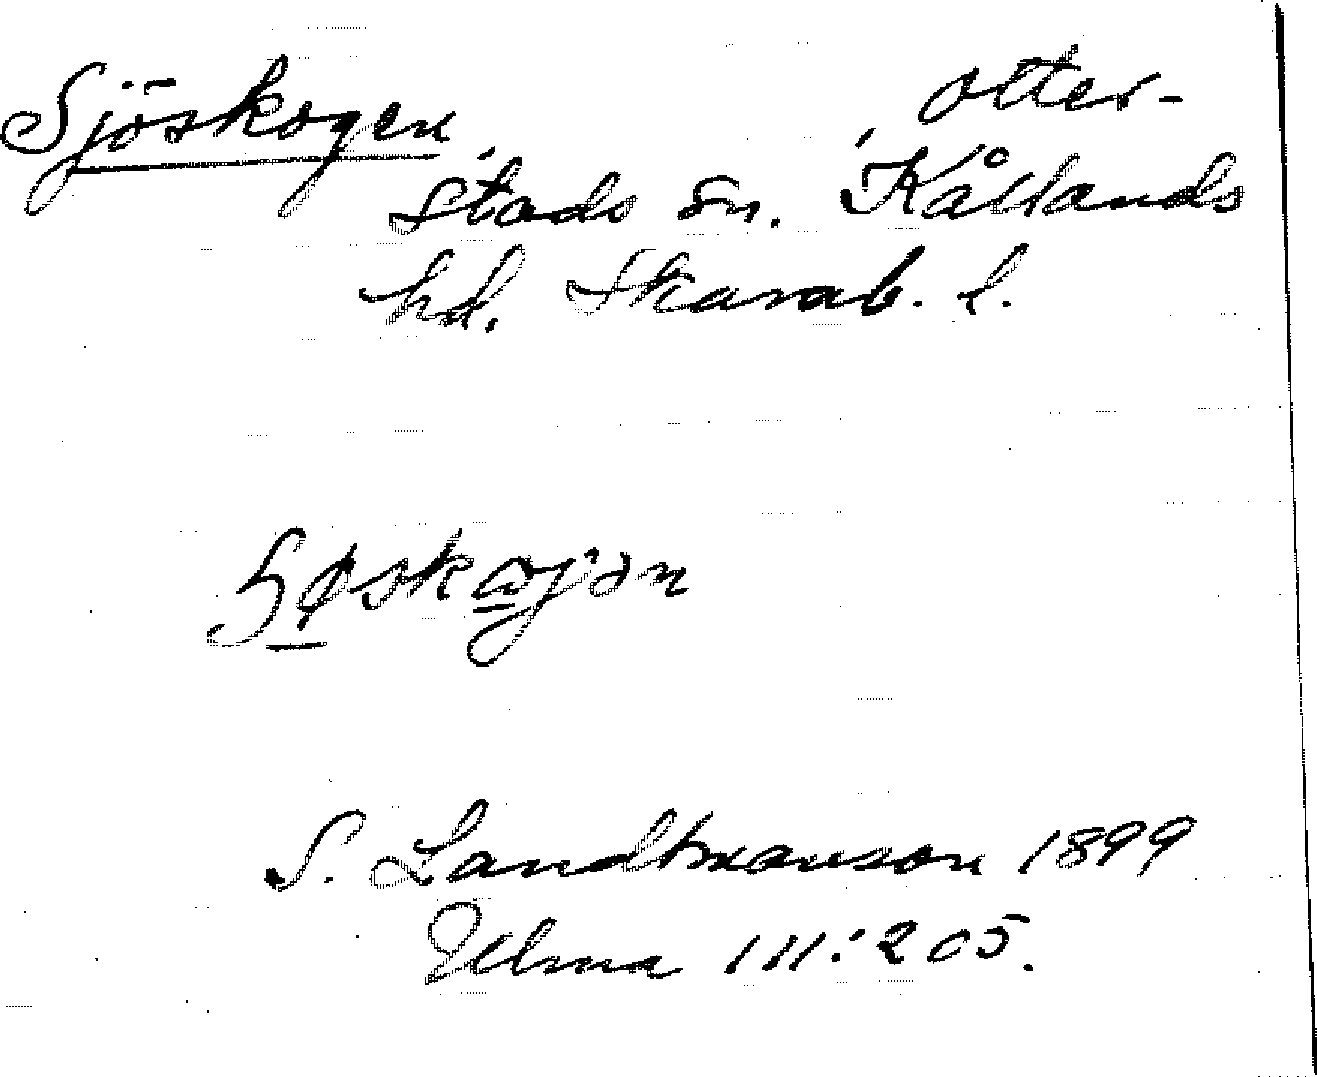 Sjöskogen, Otter-
stads sn. Kållands
hd. Skarab. l.
S. Landtmanson 1899
Ulma 111:205.